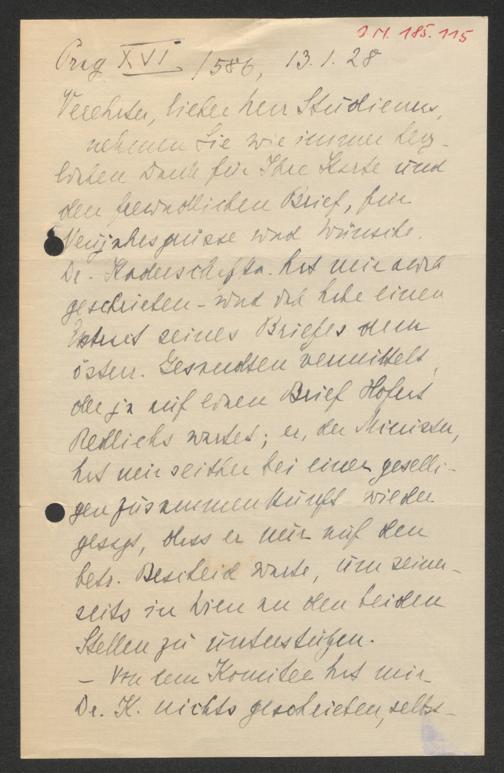 J.N. 185.115
Prag XVI /586, 13.1.28
Verehrter, lieber Herr Studienrat,
nehmen Sie wie immer herz-
lichsten Dank für Ihre Karte und
den freundlichen Brief, für
Neujahrsgrüsse und Wünsche.
Dr. hat mir
geschrieben – und ich habe einen
seines Briefes dem
österr. Gesandten vermittelt,
der ja auf einen Brief Hofrat
Redlichs wartet; er, der Minister,
hat mir seither bei einer geselli-
gen Zusammenkunft wieder
gesagt, dass er nur auf den
betr. Bescheid warte, um seiner-
seits in Wien an den beiden
Stellen zu unterstützen.
– Von dem Komitee hat mir
Dr. K. nichts geschrieben, selbs-